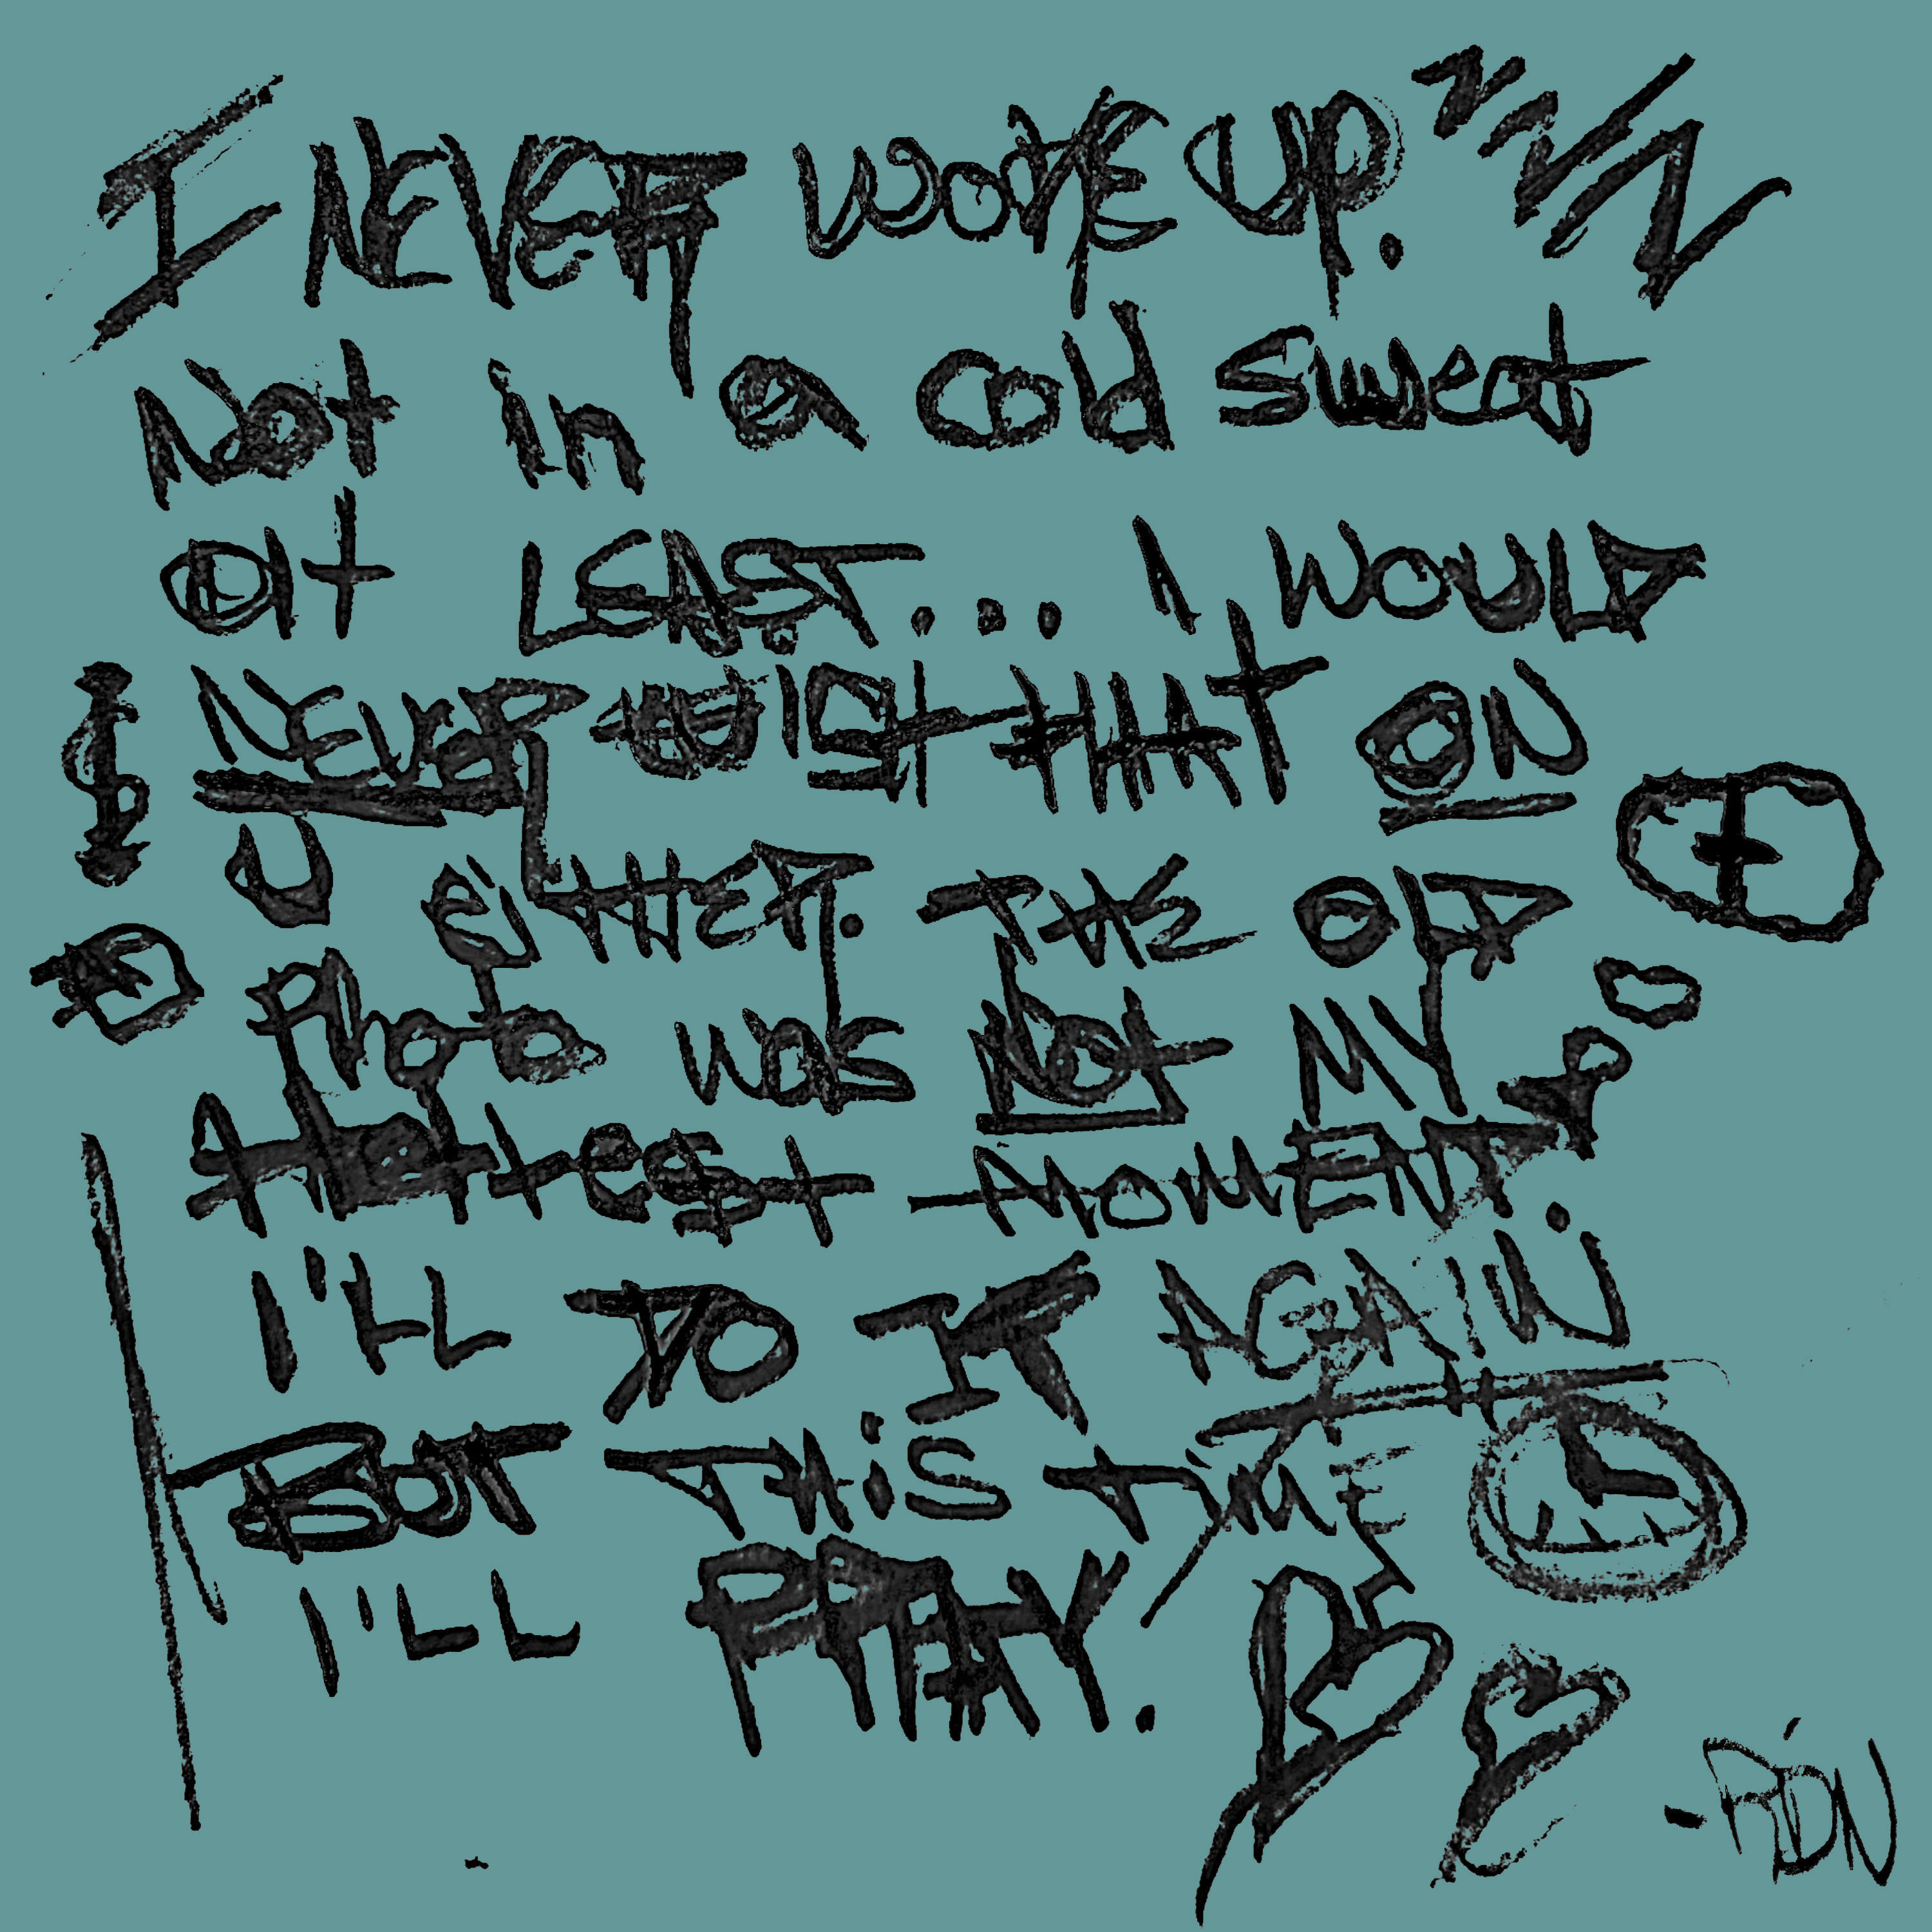 I NEVER WOKE UP.
Not in a cold sweat
at LEAST... I WOULD
NEVER WISH THAT ON
U EITHER. THE OLD
Photo was Not MY
Hottest MOMENT.
I'LL DO IT AGAIN
BUT THiS TiME
I'LL PRAY.
-RDN